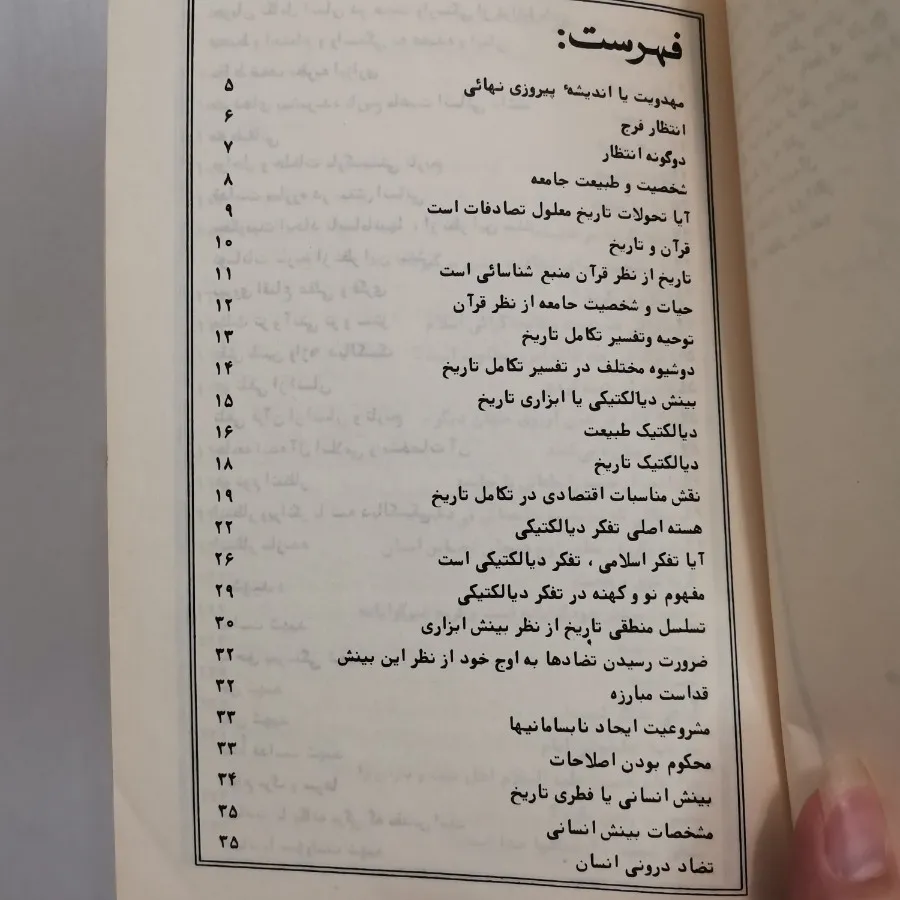 فهرست:
مهدویت یا اندیشهٔ پیروزی نهائی ۵
انتظار فرج ۶
دوگونه انتظار ۷
شخصیت و طبیعت جامعه ۸
آیا تحولات تاریخ معلول تصادفات است ۹
قرآن و تاریخ ۱۰
تاریخ از نظر قرآن منبع شناسائی است ۱۱
حیات و شخصیت جامعه از نظر قرآن ۱۲
توحیه وتفسیر تکامل تاریخ ۱۳
دوشیوه مختلف در تفسیر تکامل تاریخ ۱۴
بینش دیالکتیکی یا ابزاری تاریخ ۱۵
دیالکتیک طبیعت ۱۶
دیالکتیک تاریخ ۱۸
نقش مناسبات اقتصادی در تکامل تاریخ ۱۹
هسته اصلی تفکر دیالکتیکی ۲۲
آیا تفکر اسلامی ، تفکر دیالکتیکی است ۲۶
مفهوم نو و کهنه در تفکر دیالکتیکی ۲۹
تسلسل منطقی تاریخ از نظر بینش ابزاری ۳۰
ضرورت رسیدن تضادها به اوج خود از نظر این بینش ۳۲
قداست مبارزه ۳۲
مشروعیت ایحاد نابسامانیها ۳۳
محکوم بودن اصلاحات ۳۳
بینش انسانی یا فطری تاریخ ۳۴
مشخصات بینش انسانی ۳۵
تضاد درونی انسان ۳۵